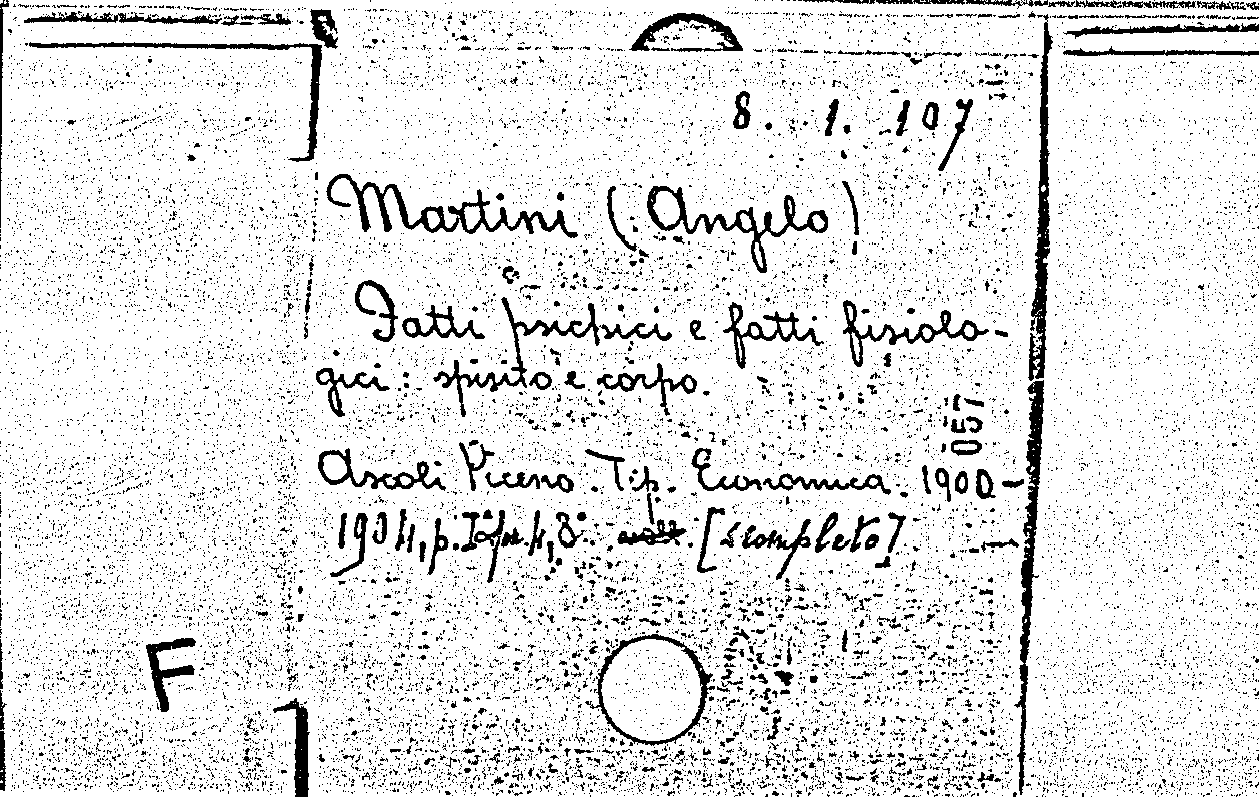 8. 1. 107
Martini (Angelo)
Fatti psichici e fatti fisiolo-
gici: spirito e corpo.
057
Ascoli Piceno. Tip. Economica. 1900-
1904, p. Iª 4, 8º. [Scompleto]
F